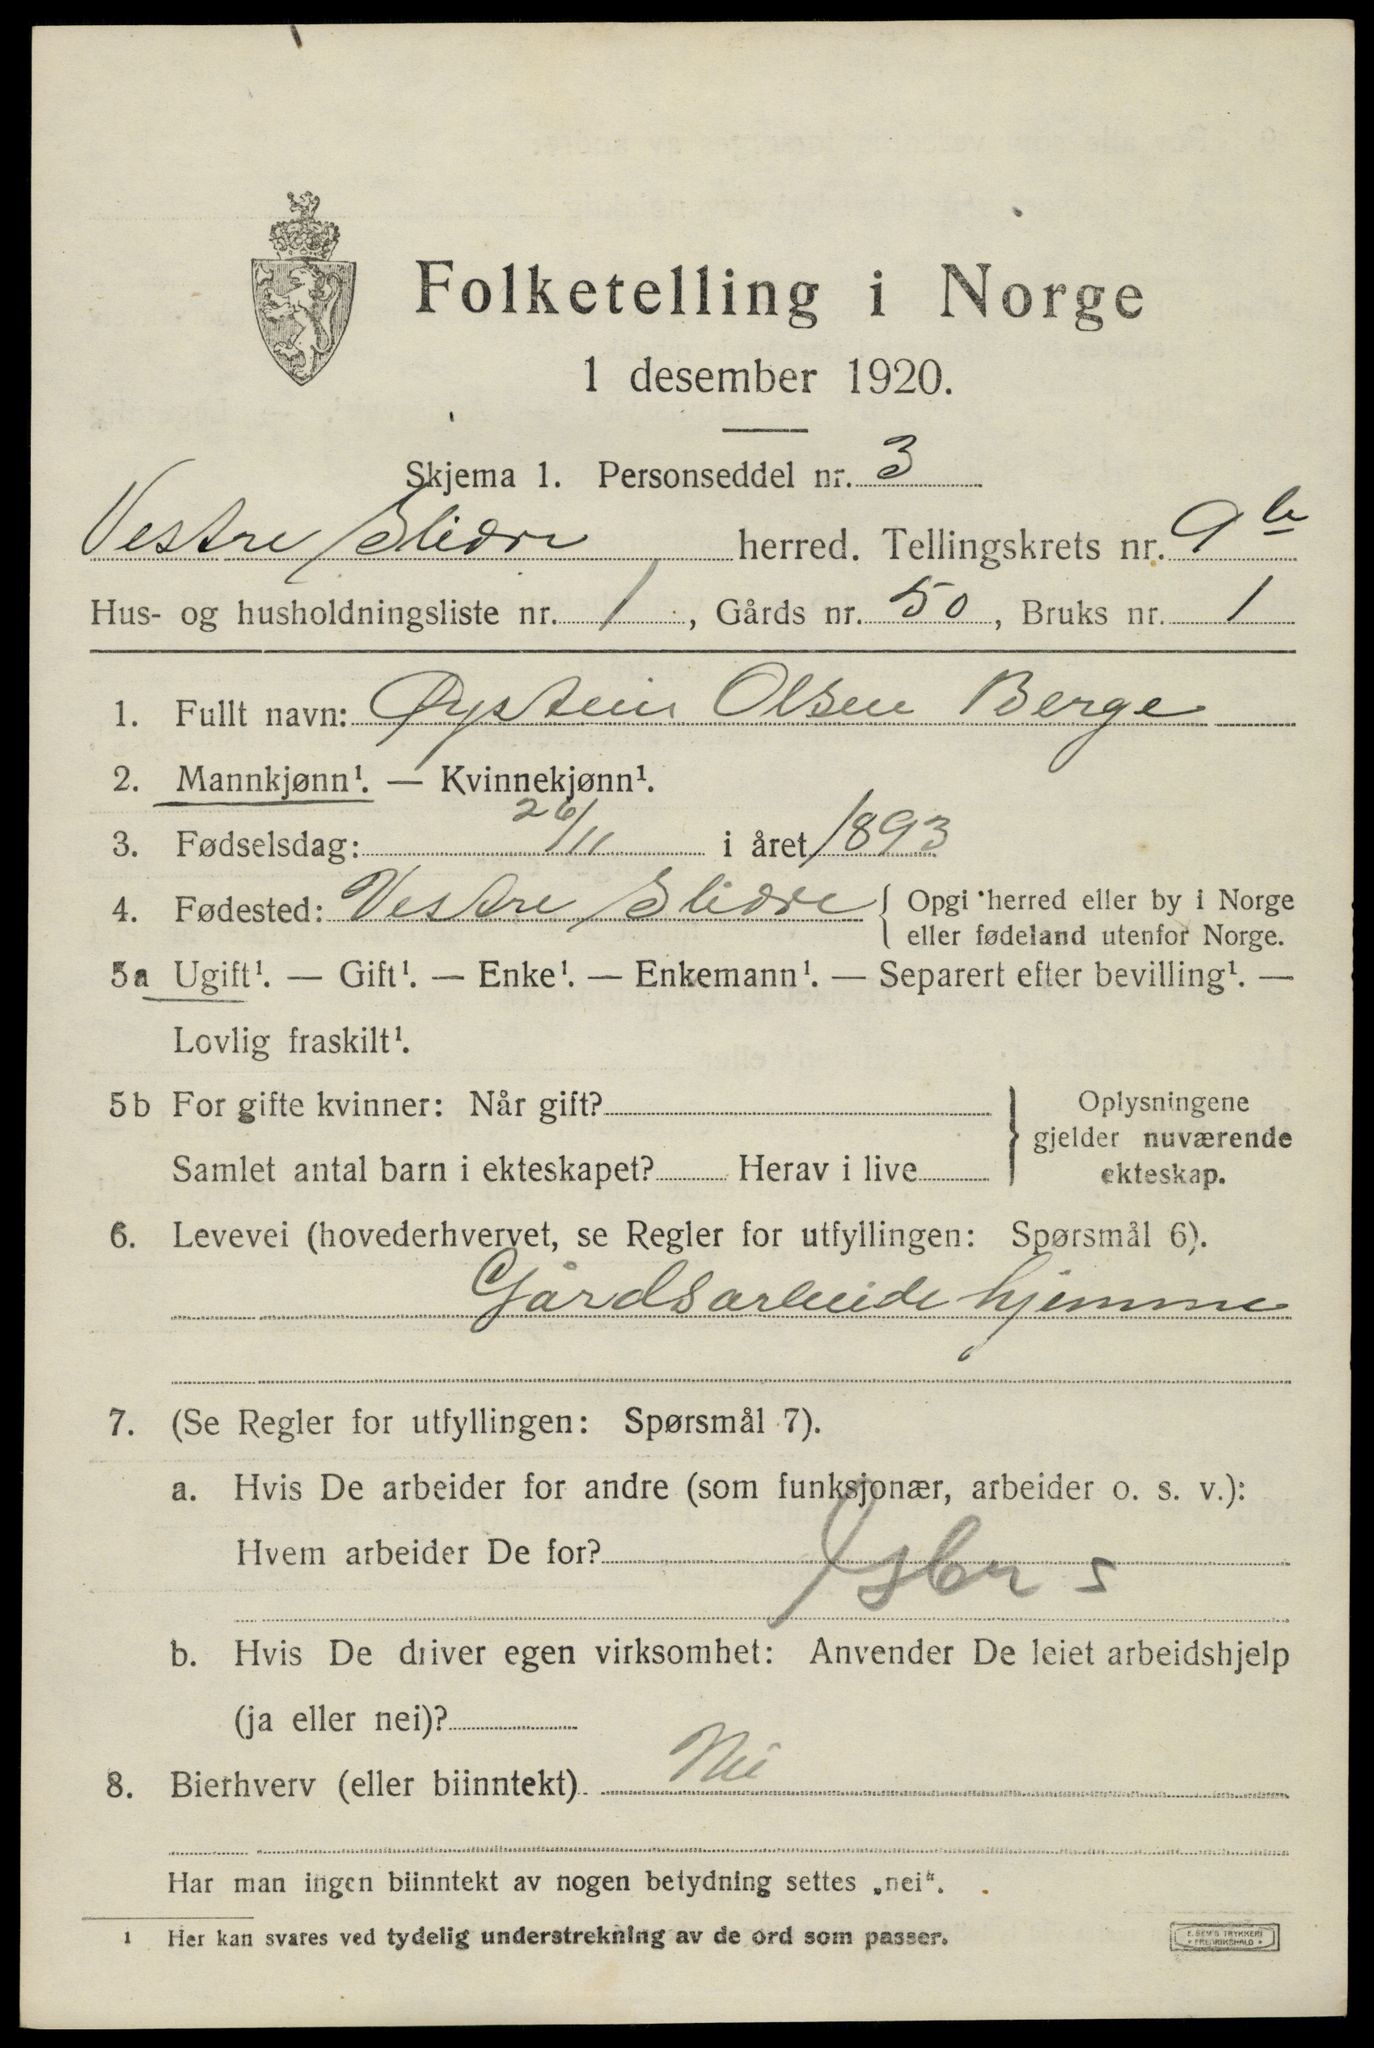 Folketelling i Norge
1 desember 1920.
Skjema 1. Personseddel nr. 3
Vestre Slidre herred. Tellingskrets nr. 9 b
Hus- og husholdningsliste nr. 1, Gårds nr. 50, Bruks nr. 1
1. Fullt navn: Øystein Olsen Berge
2. Mannkjønn¹. — Kvinnekjønn¹.
3. Fødselsdag: 26/11 i året 1893
4. Fødested: Vestre Slidre { Opgi herred eller by i Norge
eller fødeland utenfor Norge.
5a Ugift¹. — Gift¹. — Enke¹. — Enkemann¹. — Separert efter bevilling¹. —
Lovlig fraskilt¹.
5b For gifte kvinner: Når gift? } Oplysningene
gjelder nuværende
ekteskap.
Samlet antal barn i ekteskapet? Herav i live
6. Levevei (hovederhvervet, se Regler for utfyllingen: Spørsmål 6).
Gårdsarbeide hjemme
7. (Se Regler for utfyllingen: Spørsmål 7).
a. Hvis De arbeider for andre (som funksjonær, arbeider o. s. v.):
Hvem arbeider De for?
b. Hvis De driver egen virksomhet: Anvender De leiet arbeidshjelp
(ja eller nei)?
8. Bierhverv (eller biinntekt) Nei
Har man ingen biinntekt av nogen betydning settes „nei“.
1 Her kan svares ved tydelig understrekning av de ord som passer.
E. SEM'S TRYKKERI
FREDRIKSHALD